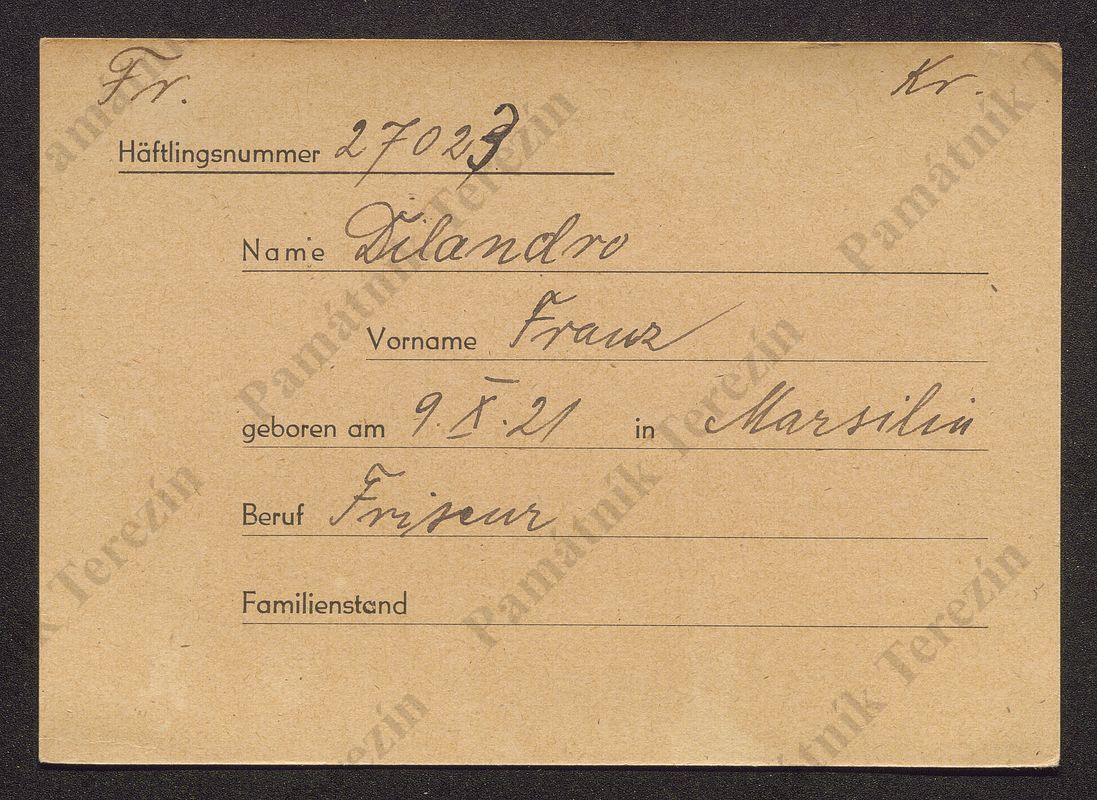 Fr. Kr.
Häftlingsnummer 27023
Name Dilandro
Vorname Franz
geboren am 9.X.21 in Marsilia
Beruf Friseur
Familienstand
Památník Terezín